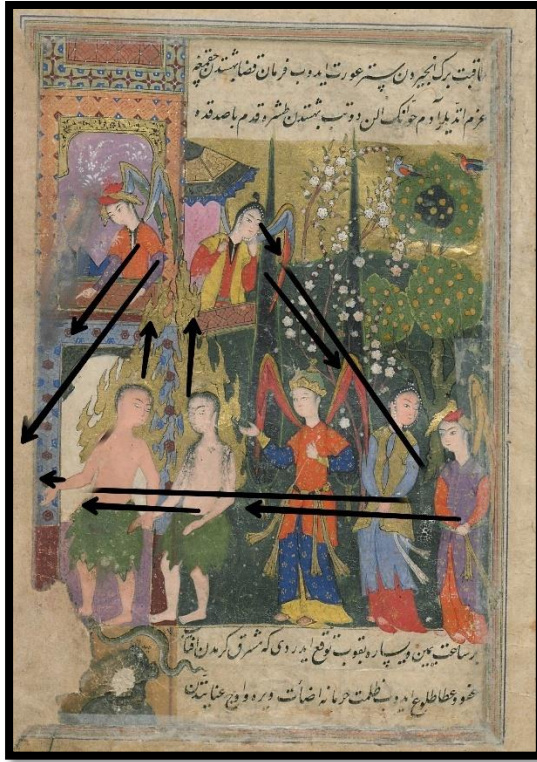 عاقبت برك انجیردن ستر عورت ایدوب فرمان قضا بهشتدن
عزم اندیلر آدم حوانك الن دوتب بهشتدن طشره قدم باصدقده
برساعت یمین و یساره بقوب توقع ایدردی كه مشرق كرمدن
عفو و عطا طلوع ایدوب ظلمت حرمانه اضائت ویره و اوج عنایتدن